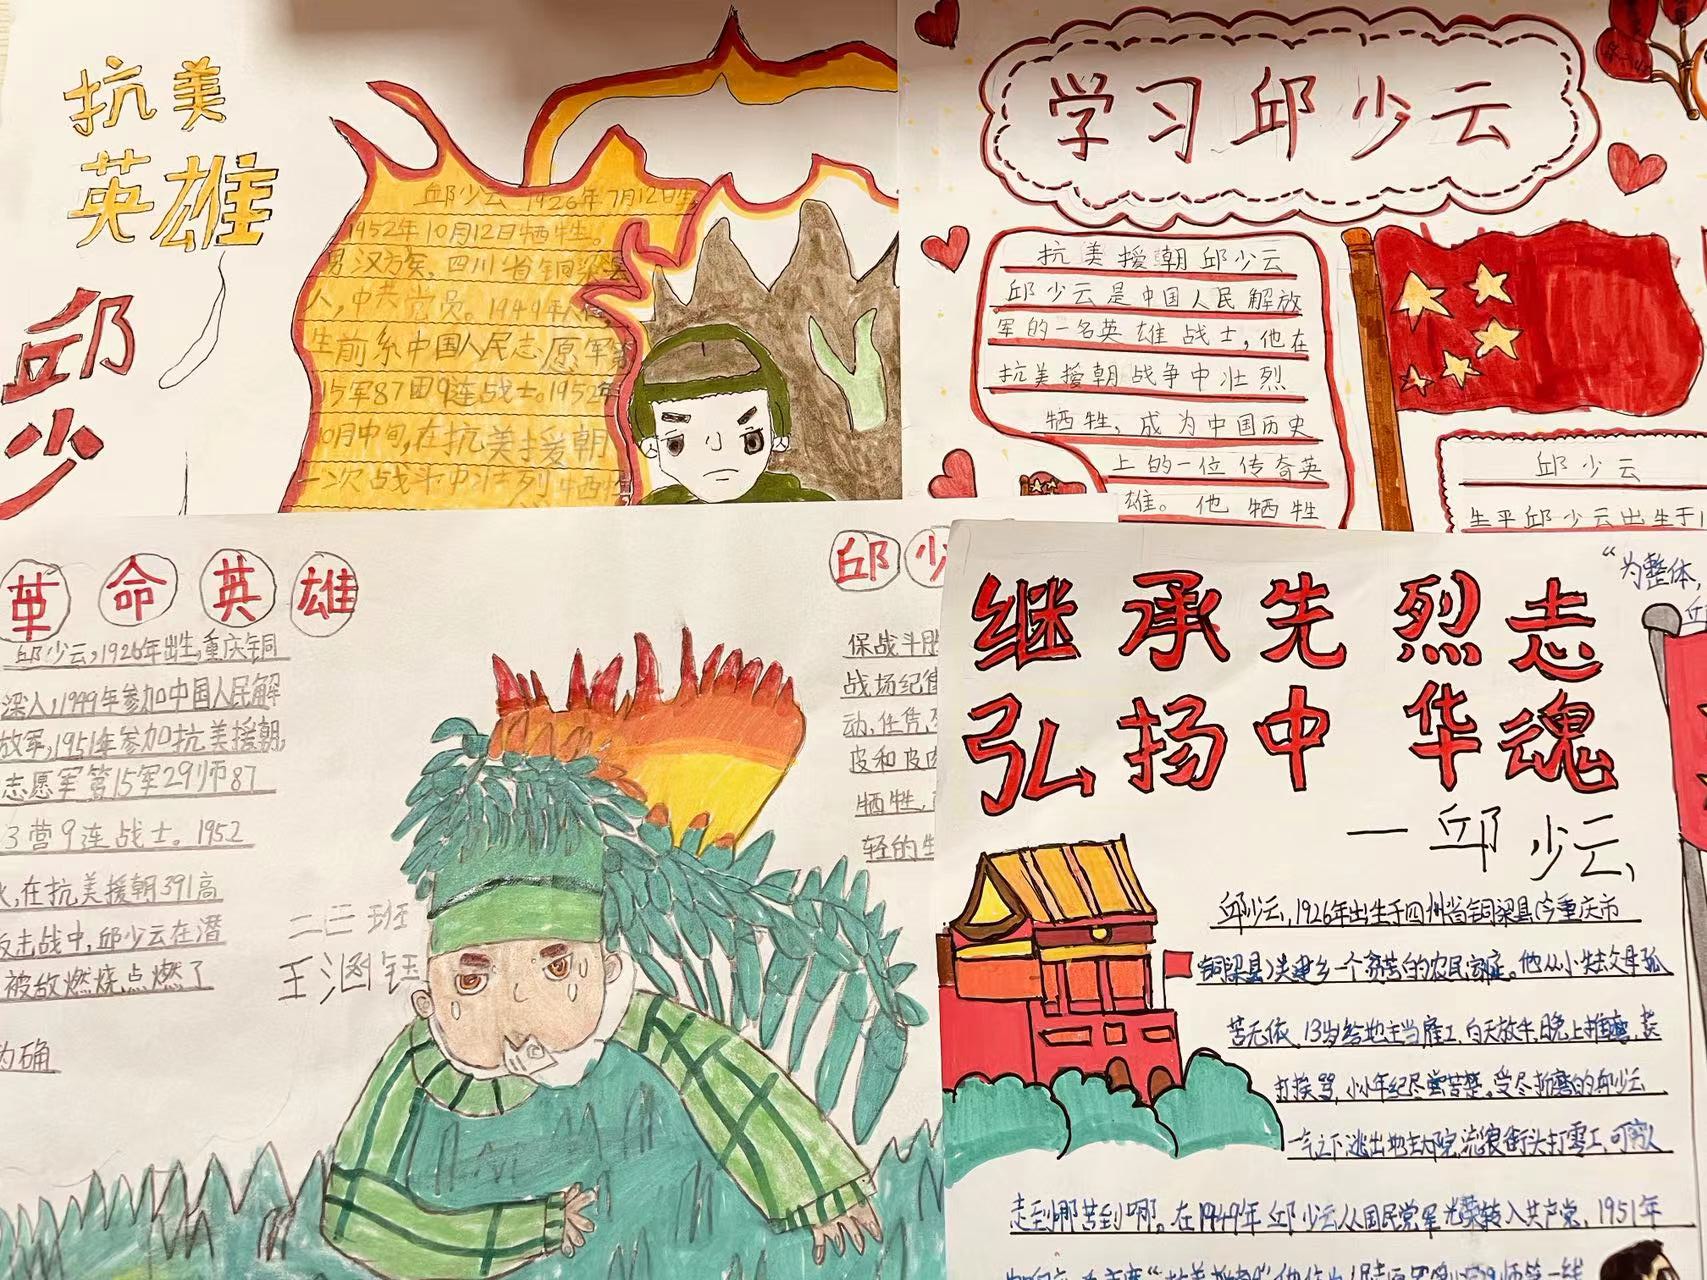 抗美
英雄
邱
少
邱少云 1926年7月12日生
1952年10月12日牺牲。
男汉方族,四川省铜梁县
人,中共党员。1949年入伍
生前系中国人民志愿军第
15军87团9连战士。1952年
10月中旬,在抗美援朝
一次战斗中壮烈牺牲
学习邱少云
抗美援朝邱少云
邱少云是中国人民解放
军的一名英雄战士,他在
抗美援朝战争中壮烈
牺牲,成为中国历史
上的一位传奇英
雄。他牺牲
邱少云
生平邱少云出生于
革命英雄
邱少
邱少云,1926年出生,重庆铜
深人,1949年参加中国人民解
放军,1951年参加抗美援朝,
志愿军第15军29师87
3营9连战士。1952
,在抗美援朝391高
反击战中,邱少云在潜
被敌燃烧点燃了
为确
二三班
王涵钰
保战斗胜
战场纪律
动,任凭
皮和皮肉
牺牲,
轻的生
“为整体,
继承先烈志
弘扬中华魂
一邱少云
邱少云,1926年出生于四州省铜梁县(今重庆市
铜梁县)关建乡一个贫苦的农民家庭。他从小失去父母孤
苦无依,13岁给地主当雇工,白天放牛,晚上推磨,挨
打挨骂,小小年纪尽尝苦楚。受尽折磨的邱少云
一气之下逃出地主大院,流浪街头打零工,可穷人
走到哪苦到哪。在1949年邱少云从国民党军光荣转入共产党,1951年